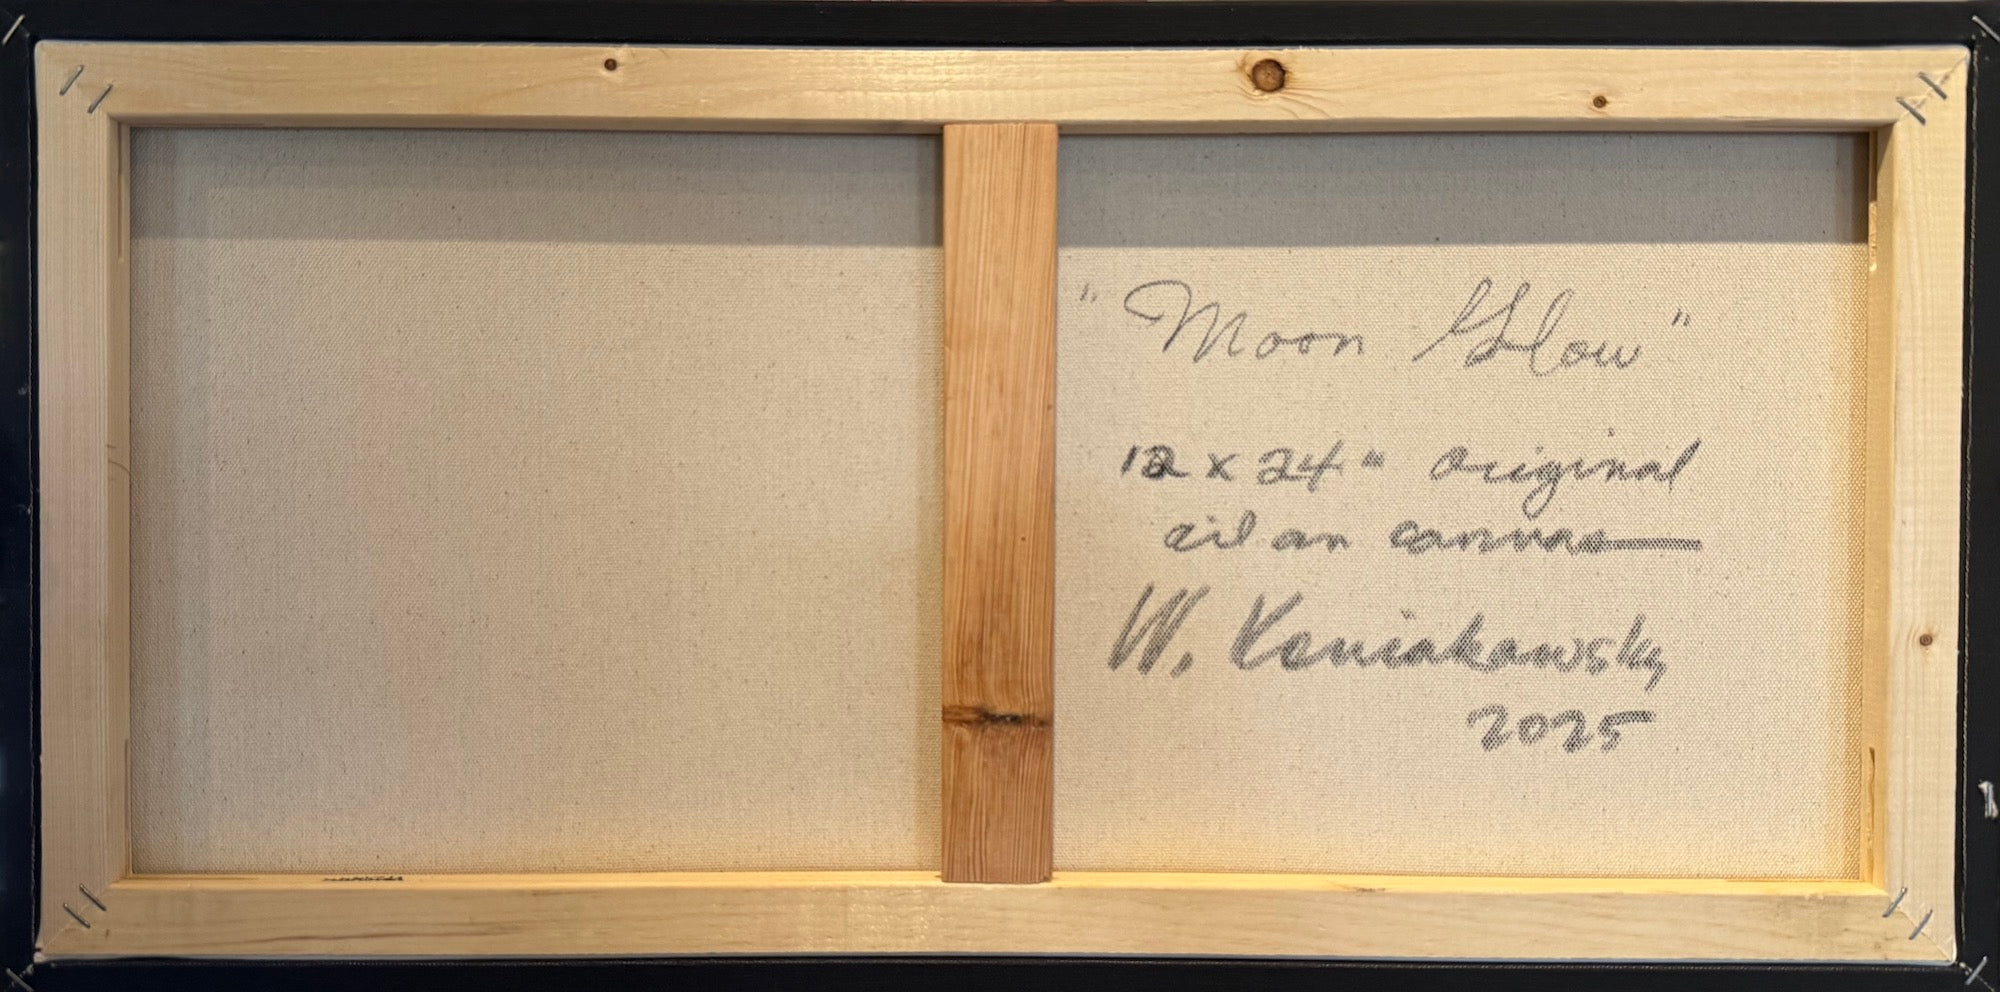 "Moon Glow"
12 x 24" original
oil on canvas
W. Keniakawsky
2025